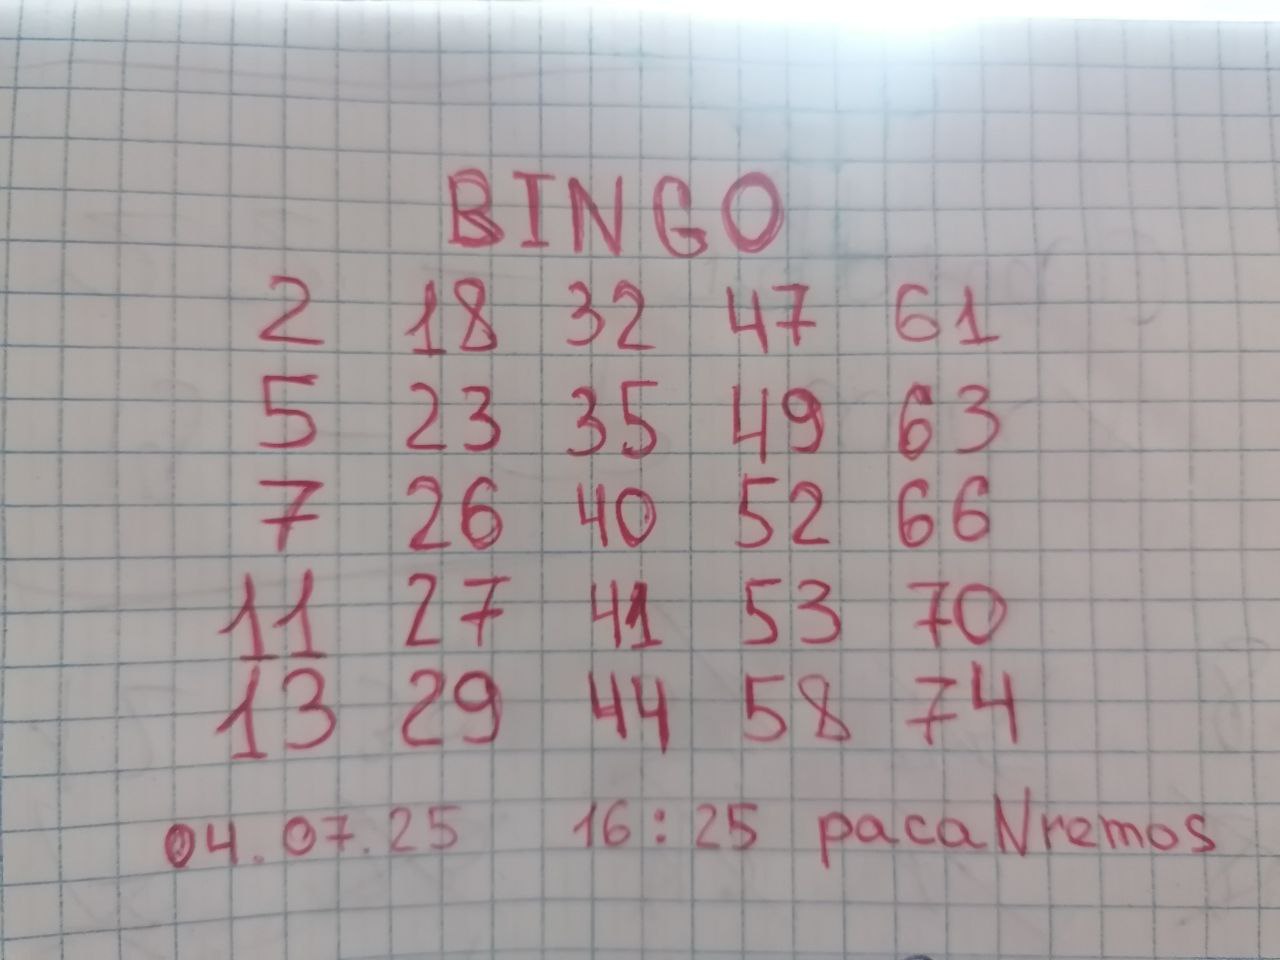 BINGO
2 18 32 47 61
5 23 35 49 63
7 26 40 52 66
11 27 41 53 70
13 29 44 58 74
04.07.25 16:25 pacaNremos